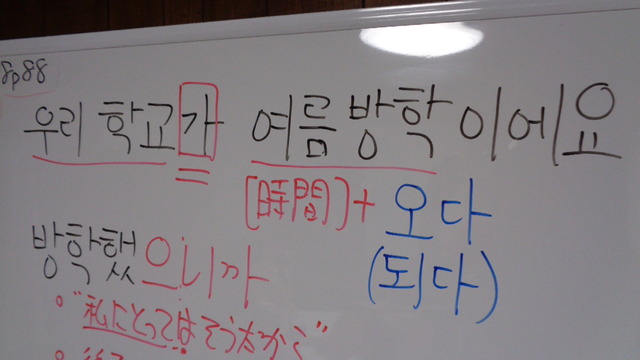 8p88
우리 학교가 여름 방학이에요
[時間]+ 오다
(되다)
방학했으니까
• "私にとってはそうだから"